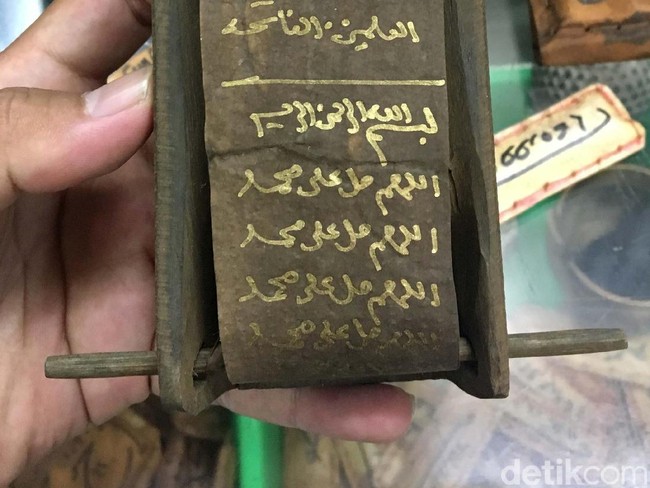 العلمين الفاتحة
بسم الله الرحمن الرحيم
اللهم صل على محمد
اللهم صل على محمد
اللهم صل على محمد
اللهم صل على محمد
detikcom